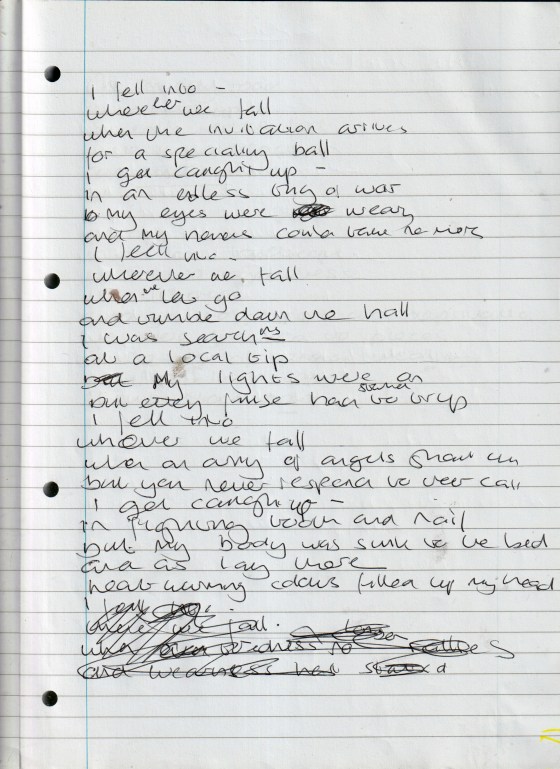 I fell into -
wherever we fall
when the invitation arrives
for a speciality ball
I get caught up -
in an endless tug of war
my eyes were weary
and my nerves could take no more
I fell into -
wherever we fall
when we let go
and tumble down the hall
I was searching
at a local tip
My lights were on
but every fuse had started to trip
I fell into
wherever we fall
when an army of angels
but you never respond to their call
I get caught up -
in fighting tooth and nail
but my body was sunk to the bed
and as I lay there
heart warming colours filled up my head
I
where we fall.
when tiredness
and weariness had